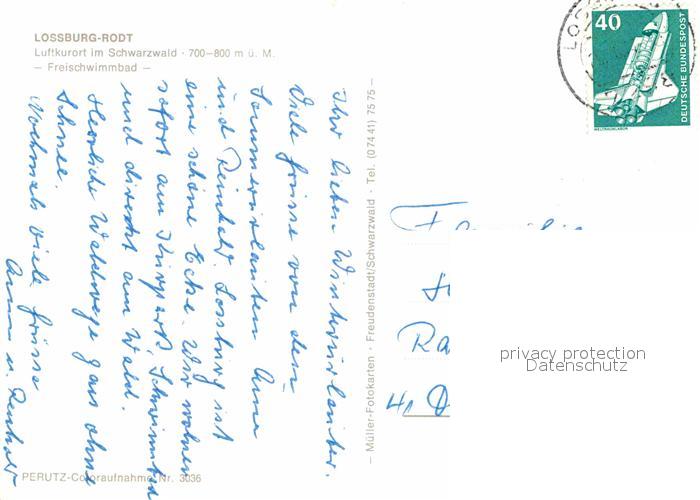 LOSSBURG-RODT
Luftkurort im Schwarzwald · 700–800 m ü. M.
– Freischwimmbad –
40
DEUTSCHE BUNDESPOST
WELTRAUMLABOR
LOSS
Ihr lieben Winterurlauber.
Viele Grüsse von den
Sommerurlaubern Anne
und Reinhold. Lossburg ist
eine schöne Ecke. Wir wohnen
sofort am Kurpark, Schwimmbad
und direkt am Wald.
Herrliche Waldwege ganz ohne
Schnee.
Nochmals viele Grüsse
Anne u. Reinhold
– Müller-Fotokarten · Freudenstadt/Schwarzwald · Tel. (07441) 7575 –
Familie
Ra
41 D
privacy protection
Datenschutz
PERUTZ-Coloraufnahme Nr. 3036